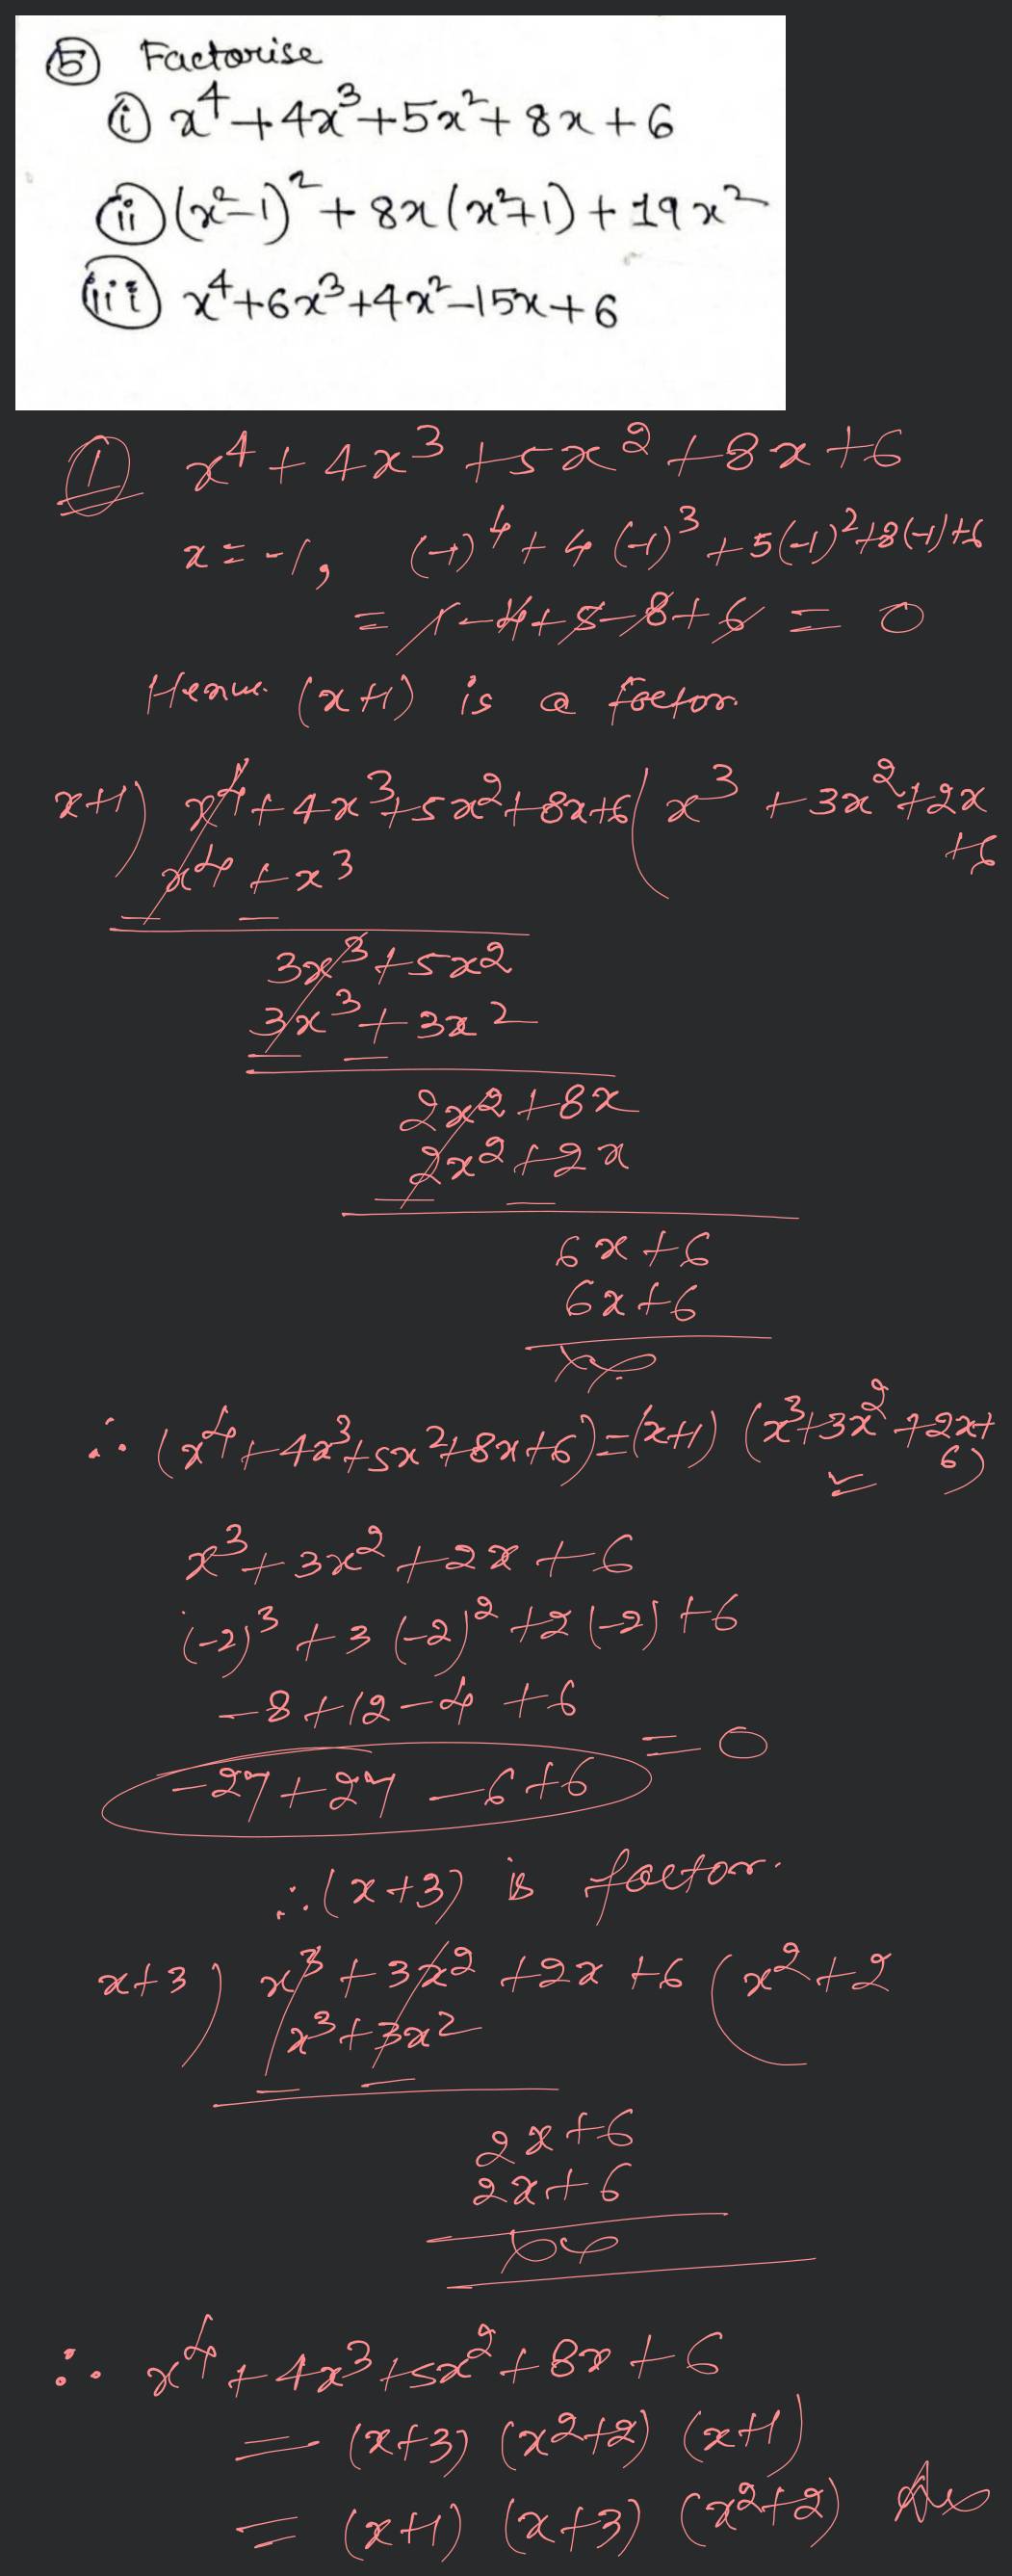 ⑤ Factorise
ⓘ x⁴+4x³+5x²+8x+6
ⓘⓘ (x²-1)²+8x(x²+1)+19x²
ⓘⓘⓘ x⁴+6x³+4x²-15x+6
① x⁴+4x³+5x²+8x+6
x=-1, (-1)⁴+4(-1)³+5(-1)²+8(-1)+6
= 1-4+5-8+6 = 0
Hence (x+1) is a factor.
x+1) x⁴+4x³+5x²+8x+6 ( x³+3x²+2x
+6
x⁴+x³
3x³+5x²
3x³+3x²
2x²+8x
2x²+2x
6x+6
6x+6
∴ (x⁴+4x³+5x²+8x+6)=(x+1) (x³+3x²+2x+
6)
x³+3x²+2x+6
(-2)³+3(-2)²+2(-2)+6
-8+12-4+6
-27+27-6+6 = 0
∴(x+3) is factor.
x+3) x³+3x²+2x+6 ( x²+2
x³+3x²
2x+6
2x+6
∴ x⁴+4x³+5x²+8x+6
= (x+3) (x²+2) (x+1)
= (x+1) (x+3) (x²+2) Ans